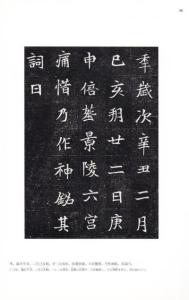 秊歲次辛丑二月
己亥朔廿二日庚
申倍塟景陵六宫
痛惜乃作神銘其
詞曰